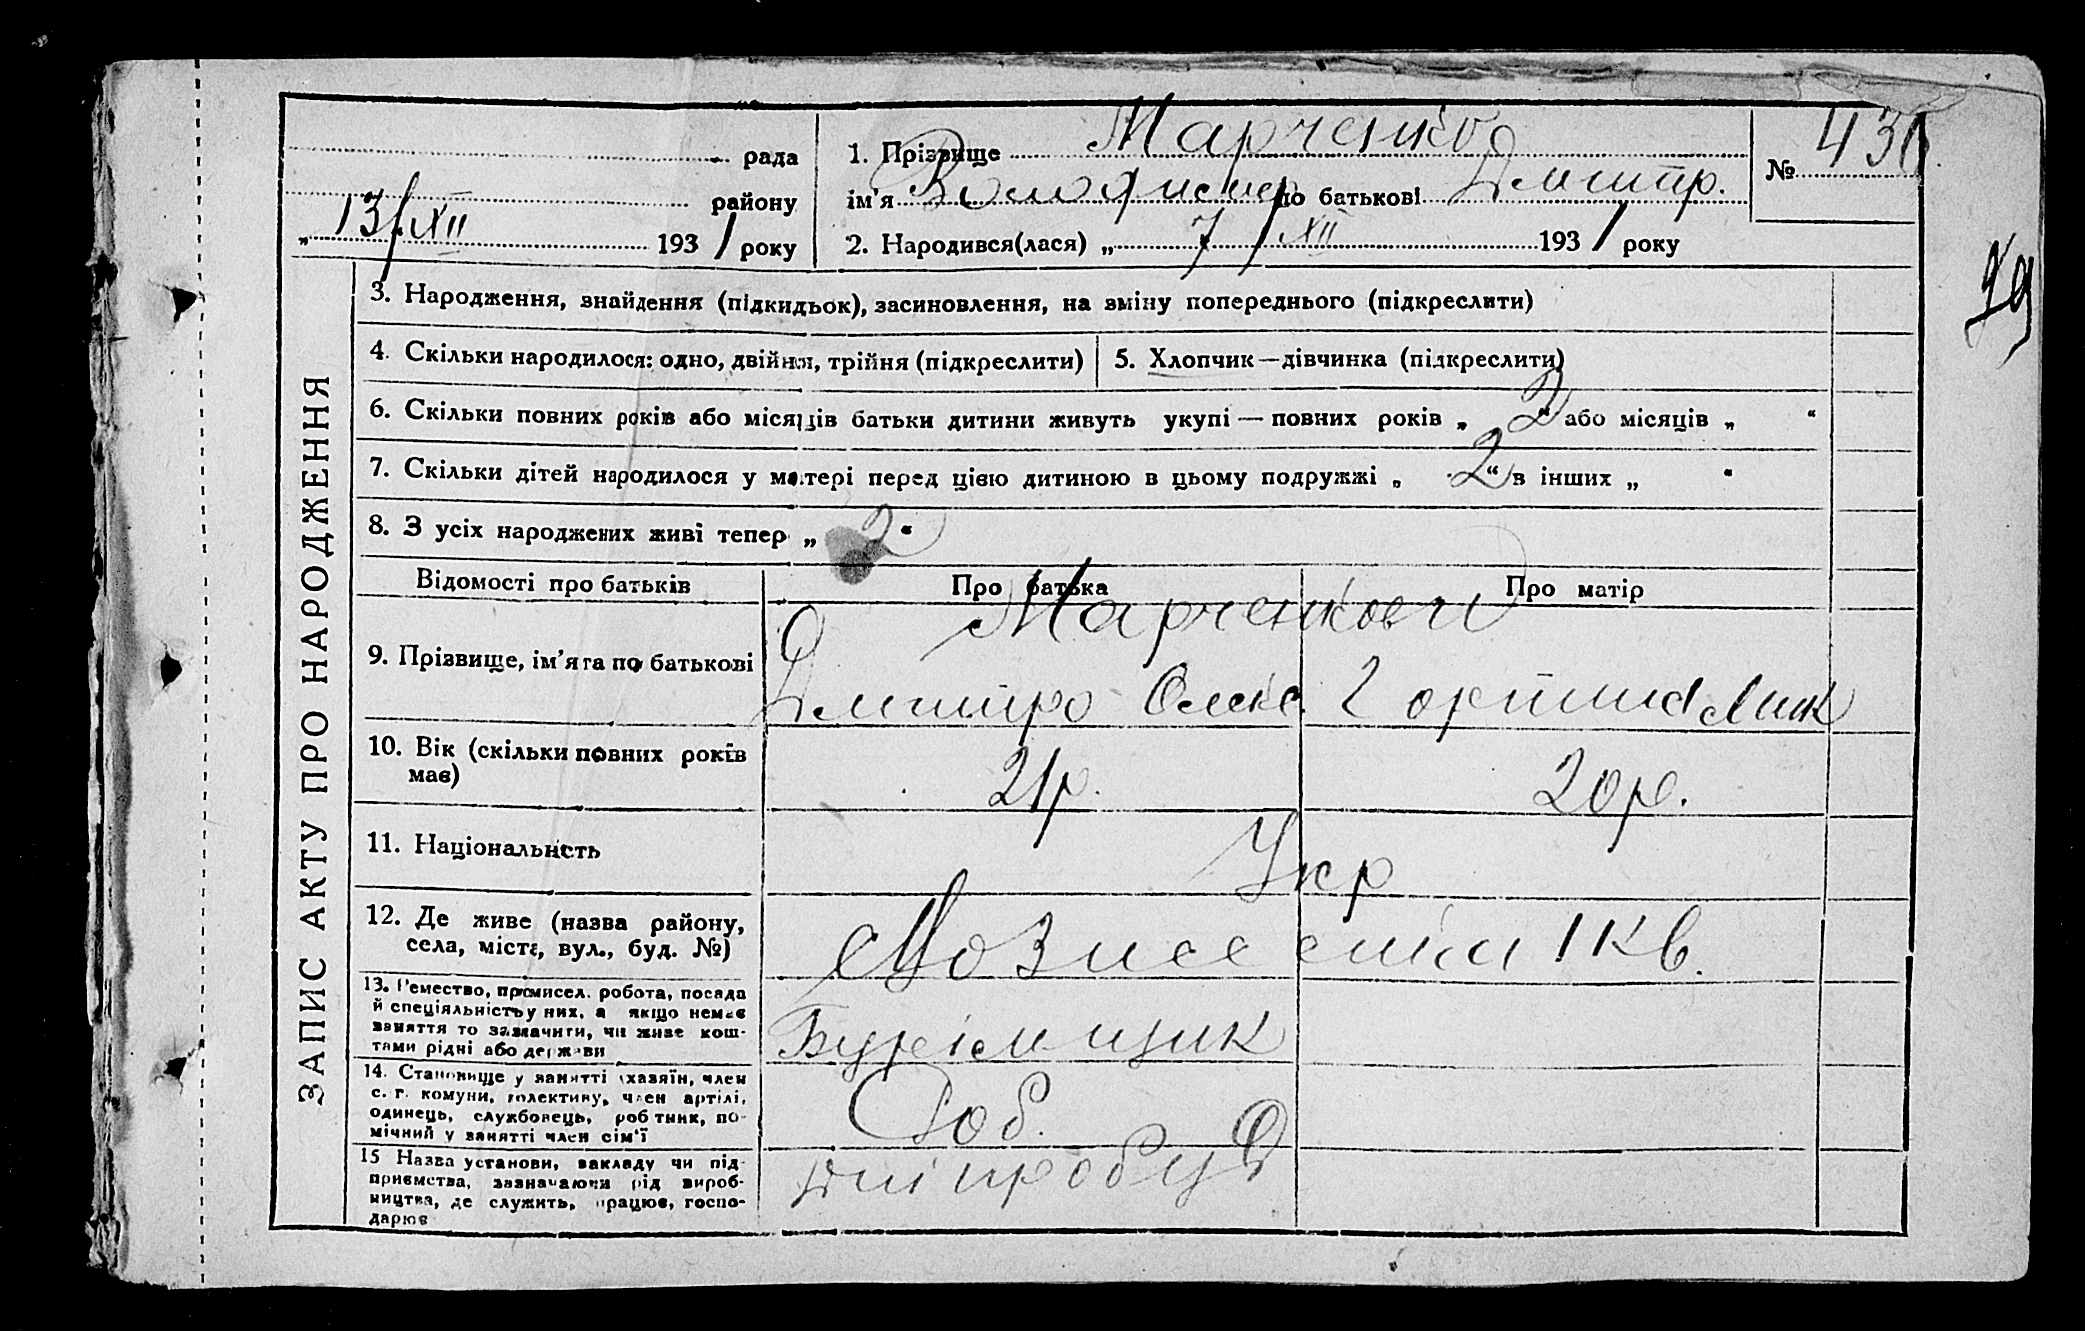 рада
району
„ 13/XII 1931 року
1. Прізвище Марченко
ім'я Володимер по батькові Дмитр.
2. Народився(лася) „ 7/XII 1931 року
№ 436
ЗАПИС АКТУ ПРО НАРОДЖЕННЯ
3. Народження, знайдення (підкидьок), засиновлення, на зміну попереднього (підкреслити)
4. Скільки народилося: одно, двійня, трійня (підкреслити)
5. Хлопчик—дівчинка (підкреслити)
6. Скільки повних років або місяців батьки дитини живуть укупі — повних років „ 2 “ або місяців „ “
7. Скільки дітей народилося у матері перед цією дитиною в цьому подружжі „ 2 “ в інших „ “
8. З усіх народжених живі тепер „ 2 “
Відомості про батьків
Про батька
Про матір
9. Прізвище, ім'я та по батькові
Марченкови
Дмитро Олекс.
10. Вік (скільки повних років
має)
21р.
20р.
11. Національність
Укр
12. Де живе (назва району,
села, міста, вул., буд. №)
Вознесенка 1 кв.
13. Ремество, промисел, робота, посада
й спеціяльність у них, а якщо немає
заняття то зазначити, чи живе кош-
тами рідні або держави
Бурімщик
14. Становище у занятті (хазяїн, член
с. г. комуни, колективу, член артілі,
одинець, службовець, робітник, по-
мічний у занятті член сім'ї
Роб.
15 Назва установи, закладу чи під-
приємства, зазначаючи рід вироб-
ництва, де служить, працює, госпо-
дарює
Дніпробуд